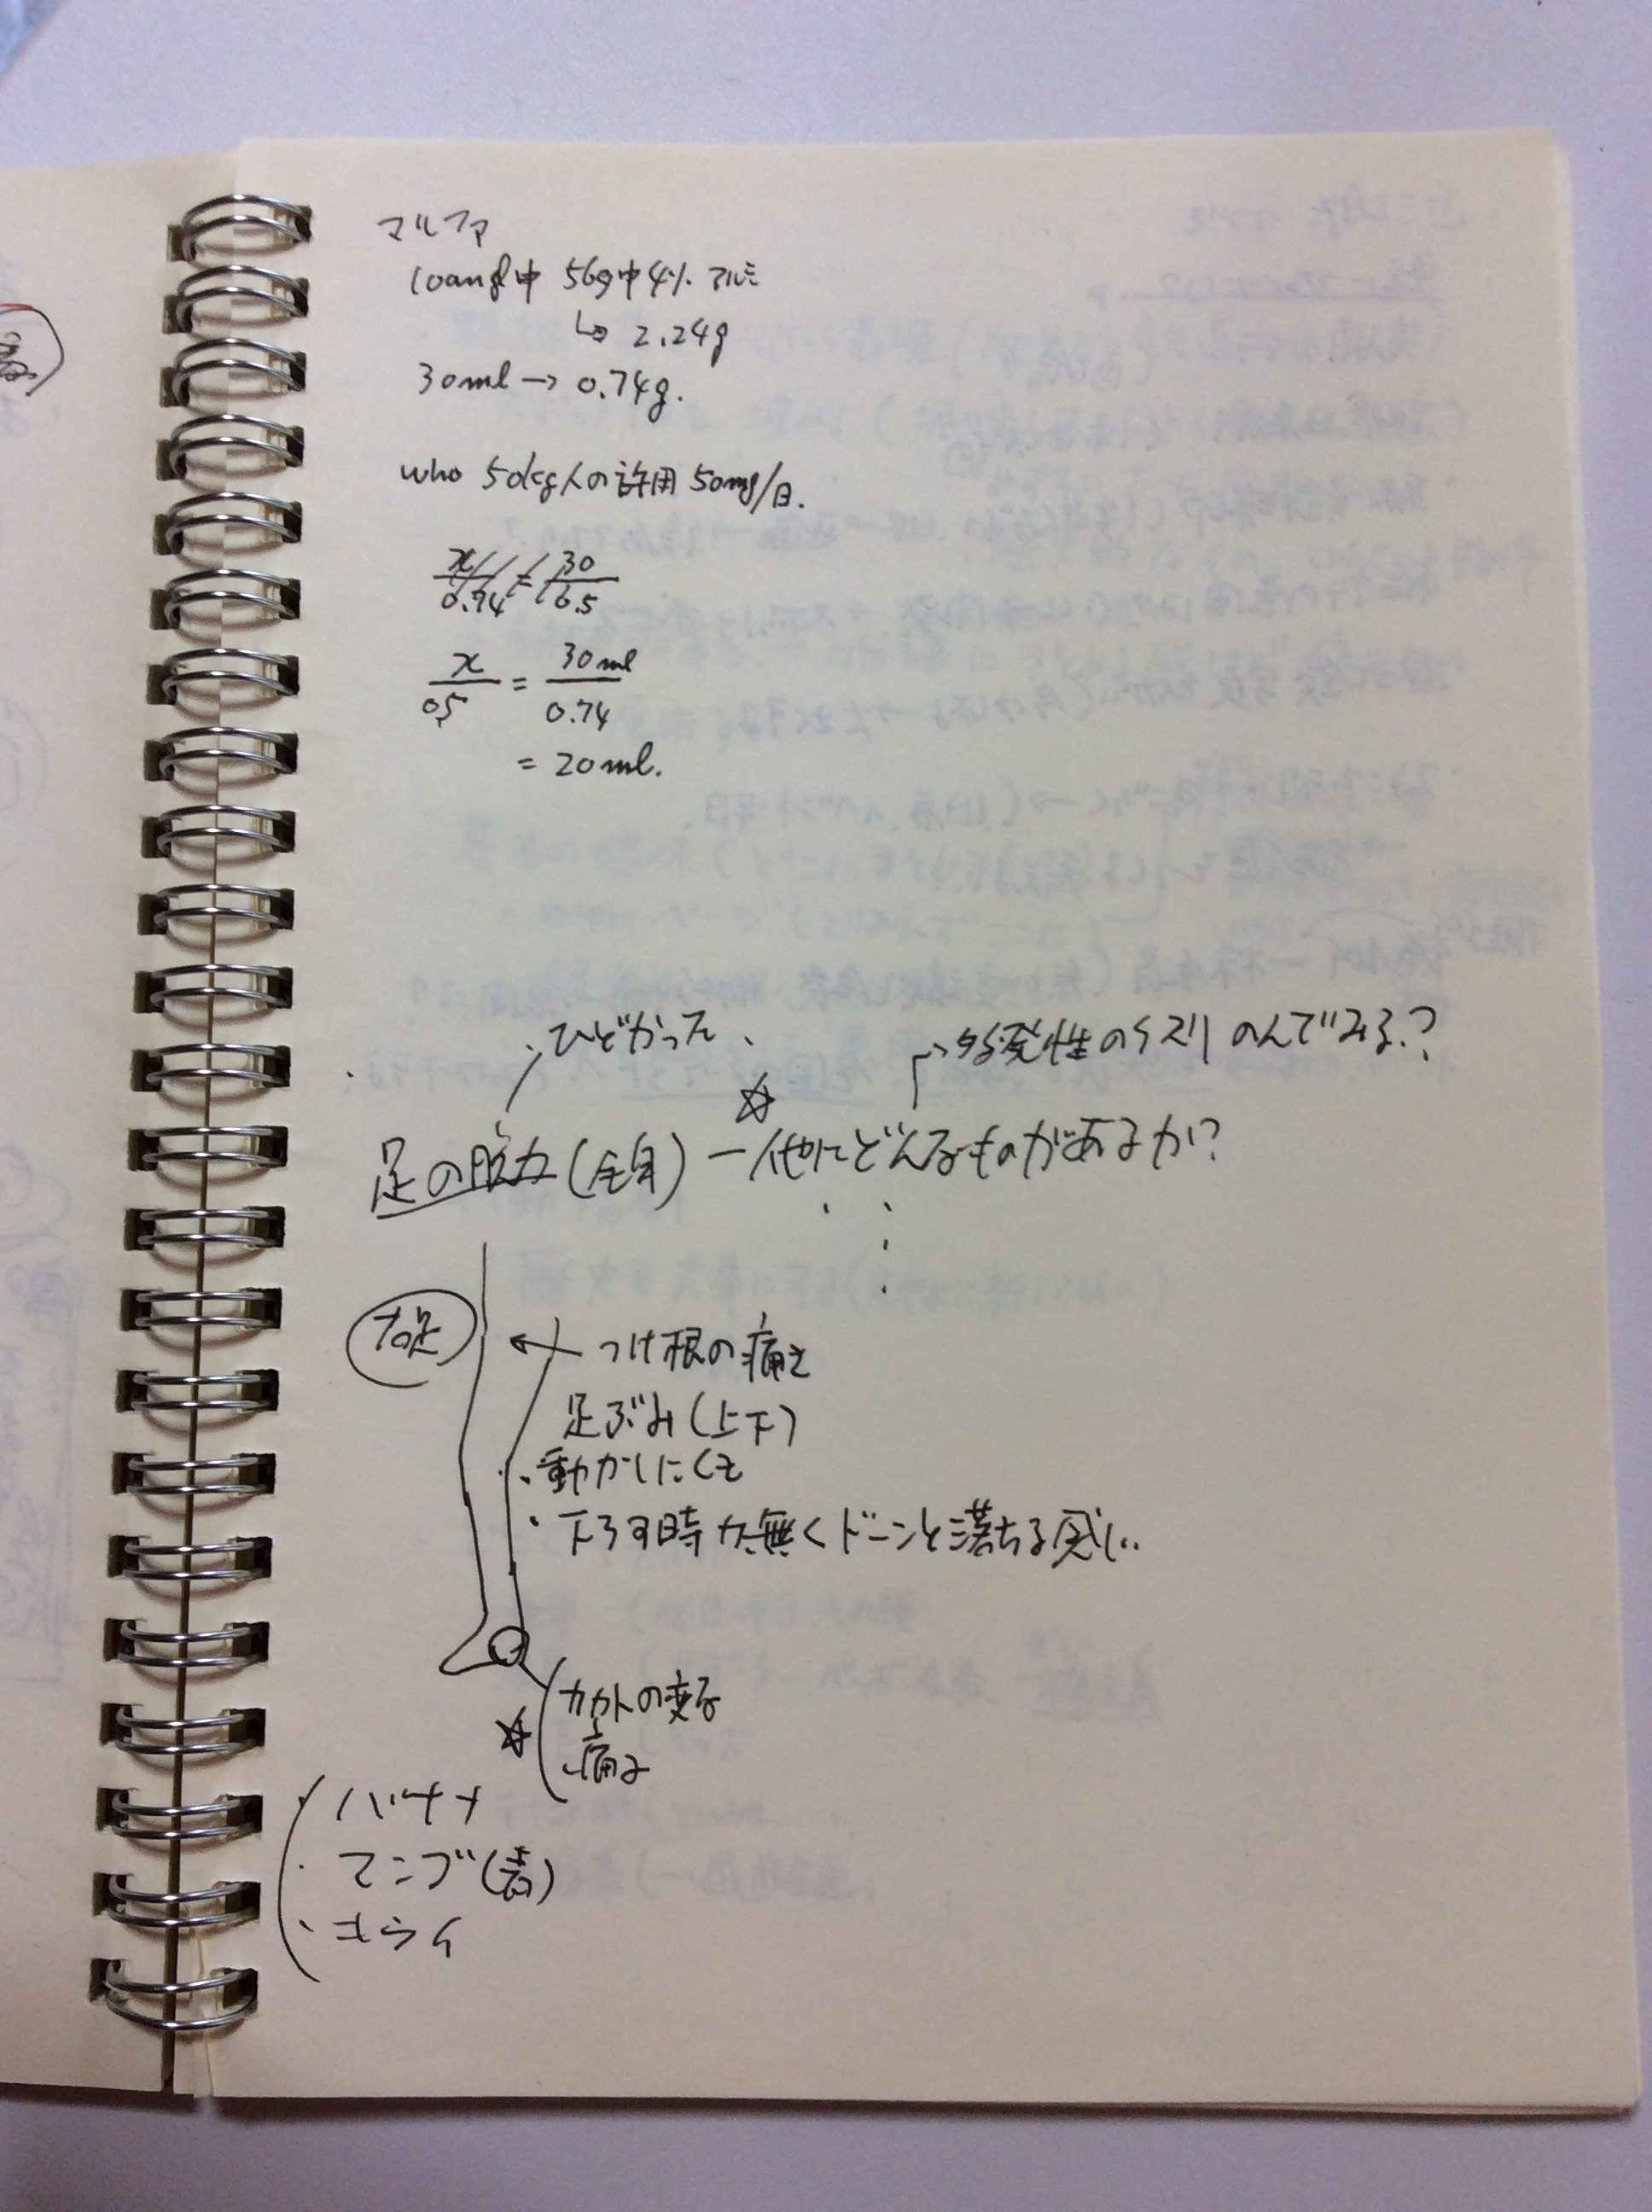 マルファ
100ml中 56g中4% アルミ
↳ 2.24g
30ml → 0.74g.
who 50kg人の許用 50mg/日.
x/0.74 = 30/6.5
x/05 = 30ml/0.74
= 20ml.
・ひどかった、
→多発性のクスリ のんでみる?
☆
足の脱力(全身) ー他にどんなものがあるか?
右足
← つけ根の痛さ
足ぶみ(上下)
・動かしにくさ
・下ろす時 力無くドーンと落ちる感じ..
☆ カカトの変な
痛み
・バナナ
・コンブ(昔)